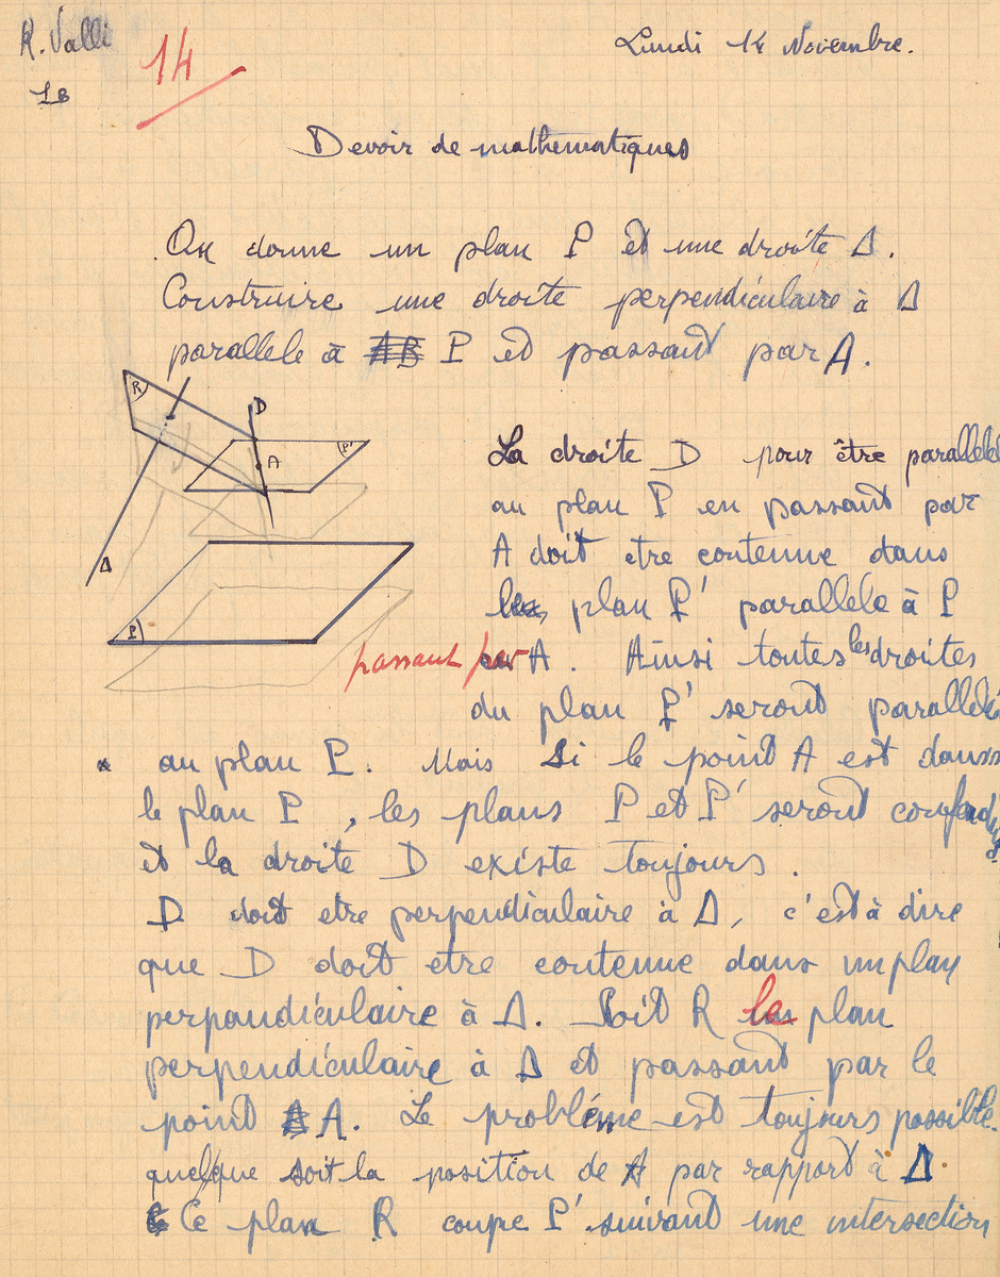 R. Valli
1B
14
Lundi 14 Novembre.
Devoir de mathematiques
On donne un plan P et une droite Δ.
Construire une droite perpendiculaire à Δ
parallele à AB P et passant par A.
R
D
P'
A
Δ
P
La droite D pour être parallele
au plan P en passant par
A doit etre contenue dans
le plan P' parallele à P
passant par A. Ainsi toutes les droites
du plan P' seront paralleles
au plan P. Mais si le point A est dans
le plan P, les plans P et P' seront confondus
et la droite D existe toujours.
D doit etre perpendiculaire à Δ, c'est à dire
que D doit etre contenue dans un plan
perpandiculaire à Δ. Soit R le plan
perpendiculaire à Δ et passant par le
point A A. Le probléme est toujours possible
quelque soit la position de A par rapport à Δ.
Ce plan R coupe P' suivant une intersection